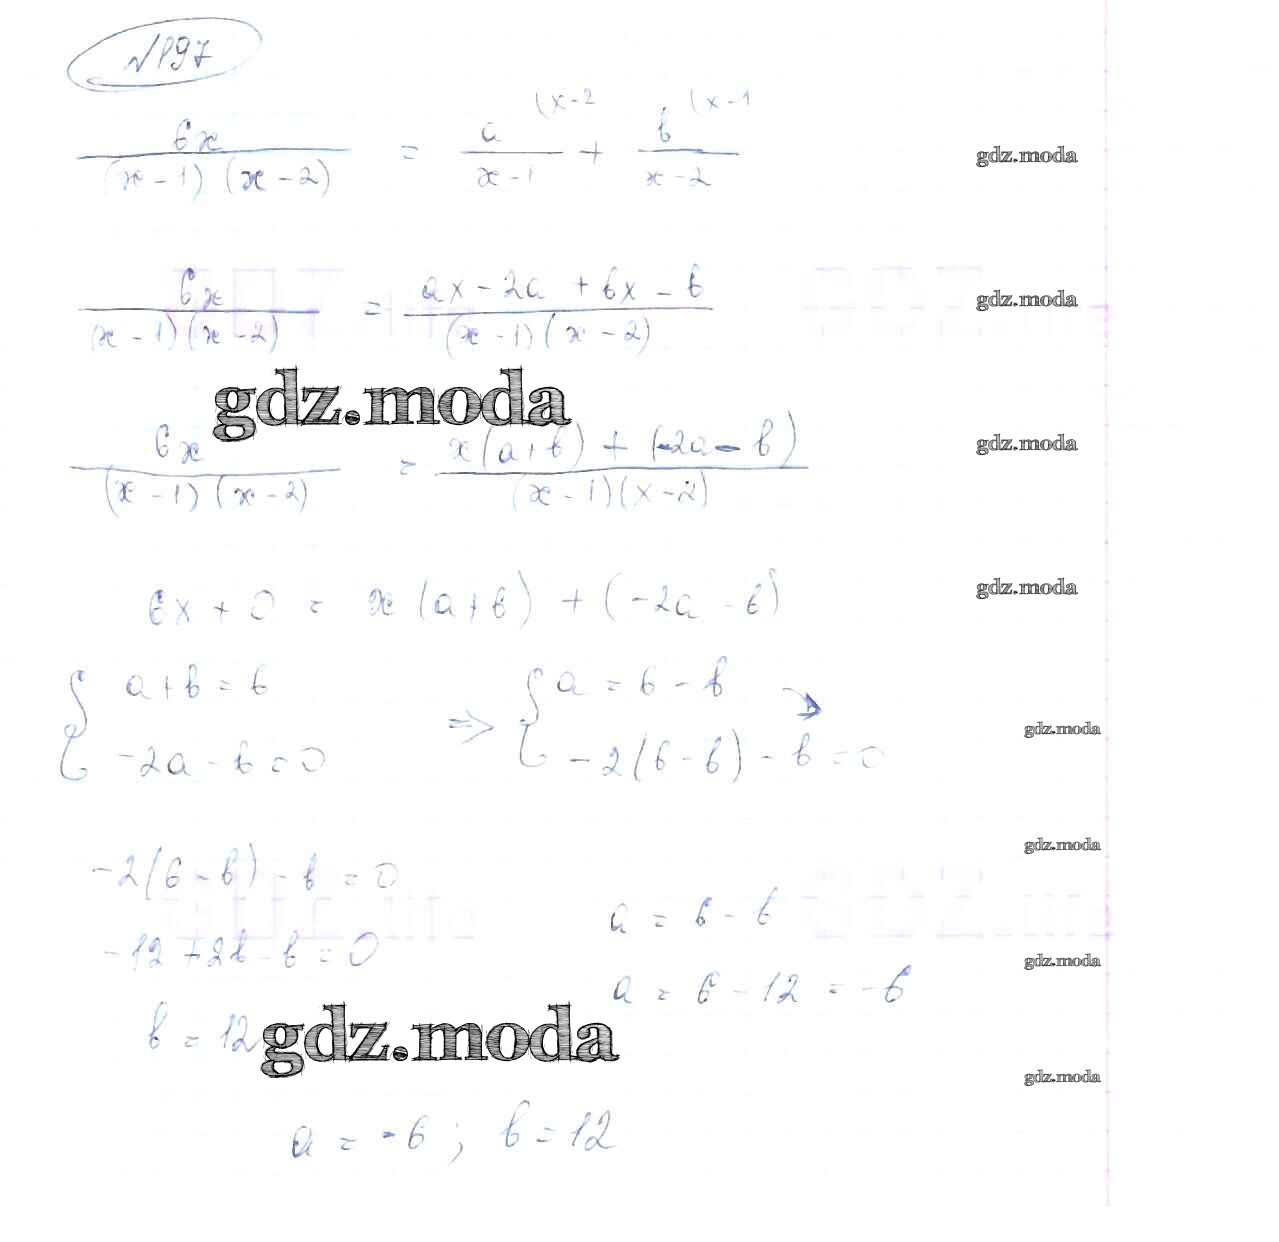 №197
6x / (x-1)(x-2) = a (x-2 / x-1 + b (x-1 / x-2
gdz.moda
6x / (x-1)(x-2) = ax-2a+bx-b / (x-1)(x-2)
gdz.moda
gdz.moda
6x / (x-1)(x-2) = x(a+b)+(-2a-b) / (x-1)(x-2)
gdz.moda
6x+0 = x(a+b)+(-2a-b)
gdz.moda
{ a+b=6 => { a=6-b
-2a-b=0 -2(6-b)-b=0
gdz.moda
-2(6-b)-b=0
gdz.moda
a=6-b
-12+2b-b=0
gdz.moda
a=6-12=-6
b=12
gdz.moda
gdz.moda
a=-6; b=12